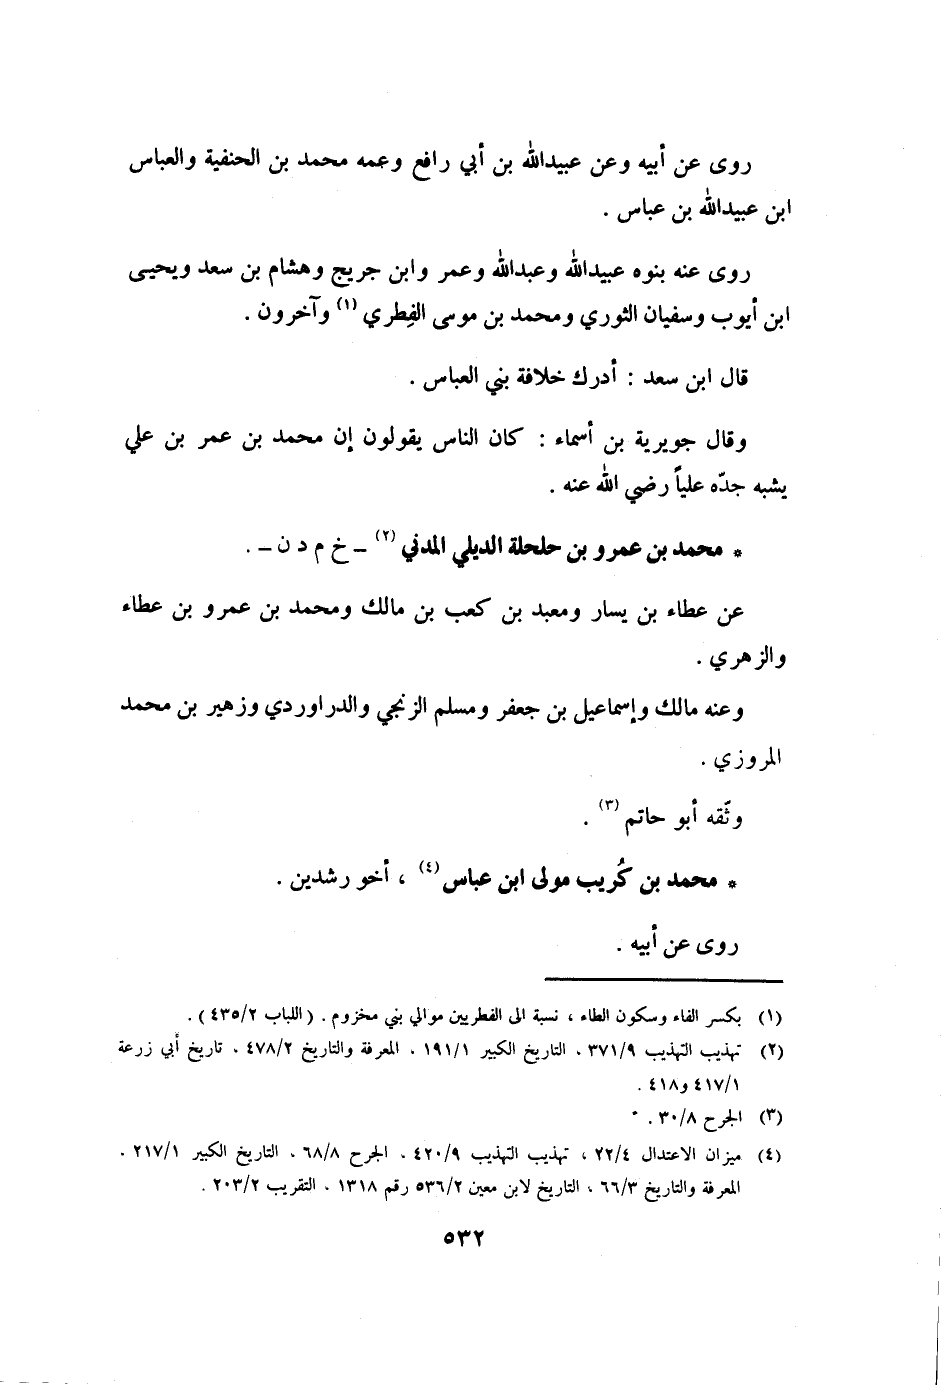 روى عن أبيه وعن عبيدالله بن أبي رافع وعمه محمد بن الحنفية والعباس
ابن عبيدالله بن عباس .
روى عنه بنوه عبيدالله وعبدالله وعمر وابن جريج وهشام بن سعد ويحيى
ابن أيوب وسفيان الثوري ومحمد بن موسى الفِطري (١) وآخرون .
قال ابن سعد : أدرك خلافة بني العباس .
وقال جويرية بن أسماء : كان الناس يقولون إن محمد بن عمر بن علي
يشبه جدّه علياً رضي الله عنه .
* محمد بن عمرو بن حلحلة الديلي المدني (٢) ـ خ م د ن ـ .
عن عطاء بن يسار ومعبد بن كعب بن مالك ومحمد بن عمرو بن عطاء
والزهري .
وعنه مالك وإسماعيل بن جعفر ومسلم الزنجي والدراوردي وزهير بن محمد
المروزي .
وثّقه أبو حاتم (٣) .
* محمد بن كُريب مولى ابن عباس (٤) ، أخو رشدين .
روى عن أبيه .
(١) بكسر الفاء وسكون الطاء ، نسبة الى الفطريين موالي بني مخزوم . ( اللباب ٤٣٥/٢ ) .
(٢) تهذيب التهذيب ٣٧١/٩ . التاريخ الكبير ١٩١/١ . المعرفة والتاريخ ٤٧٨/٢ . تاريخ أبي زرعة
٤١٧/١ و٤١٨ .
(٣) الجرح ٣٠/٨ .
(٤) ميزان الاعتدال ٢٢/٤ ، تهذيب التهذيب ٤٢٠/٩ . الجرح ٦٨/٨ . التاريخ الكبير ٢١٧/١ .
المعرفة والتاريخ ٦٦/٣ ، التاريخ لابن معين ٥٣٦/٢ رقم ١٣١٨ . التقريب ٢٠٣/٢ .
٥٣٢